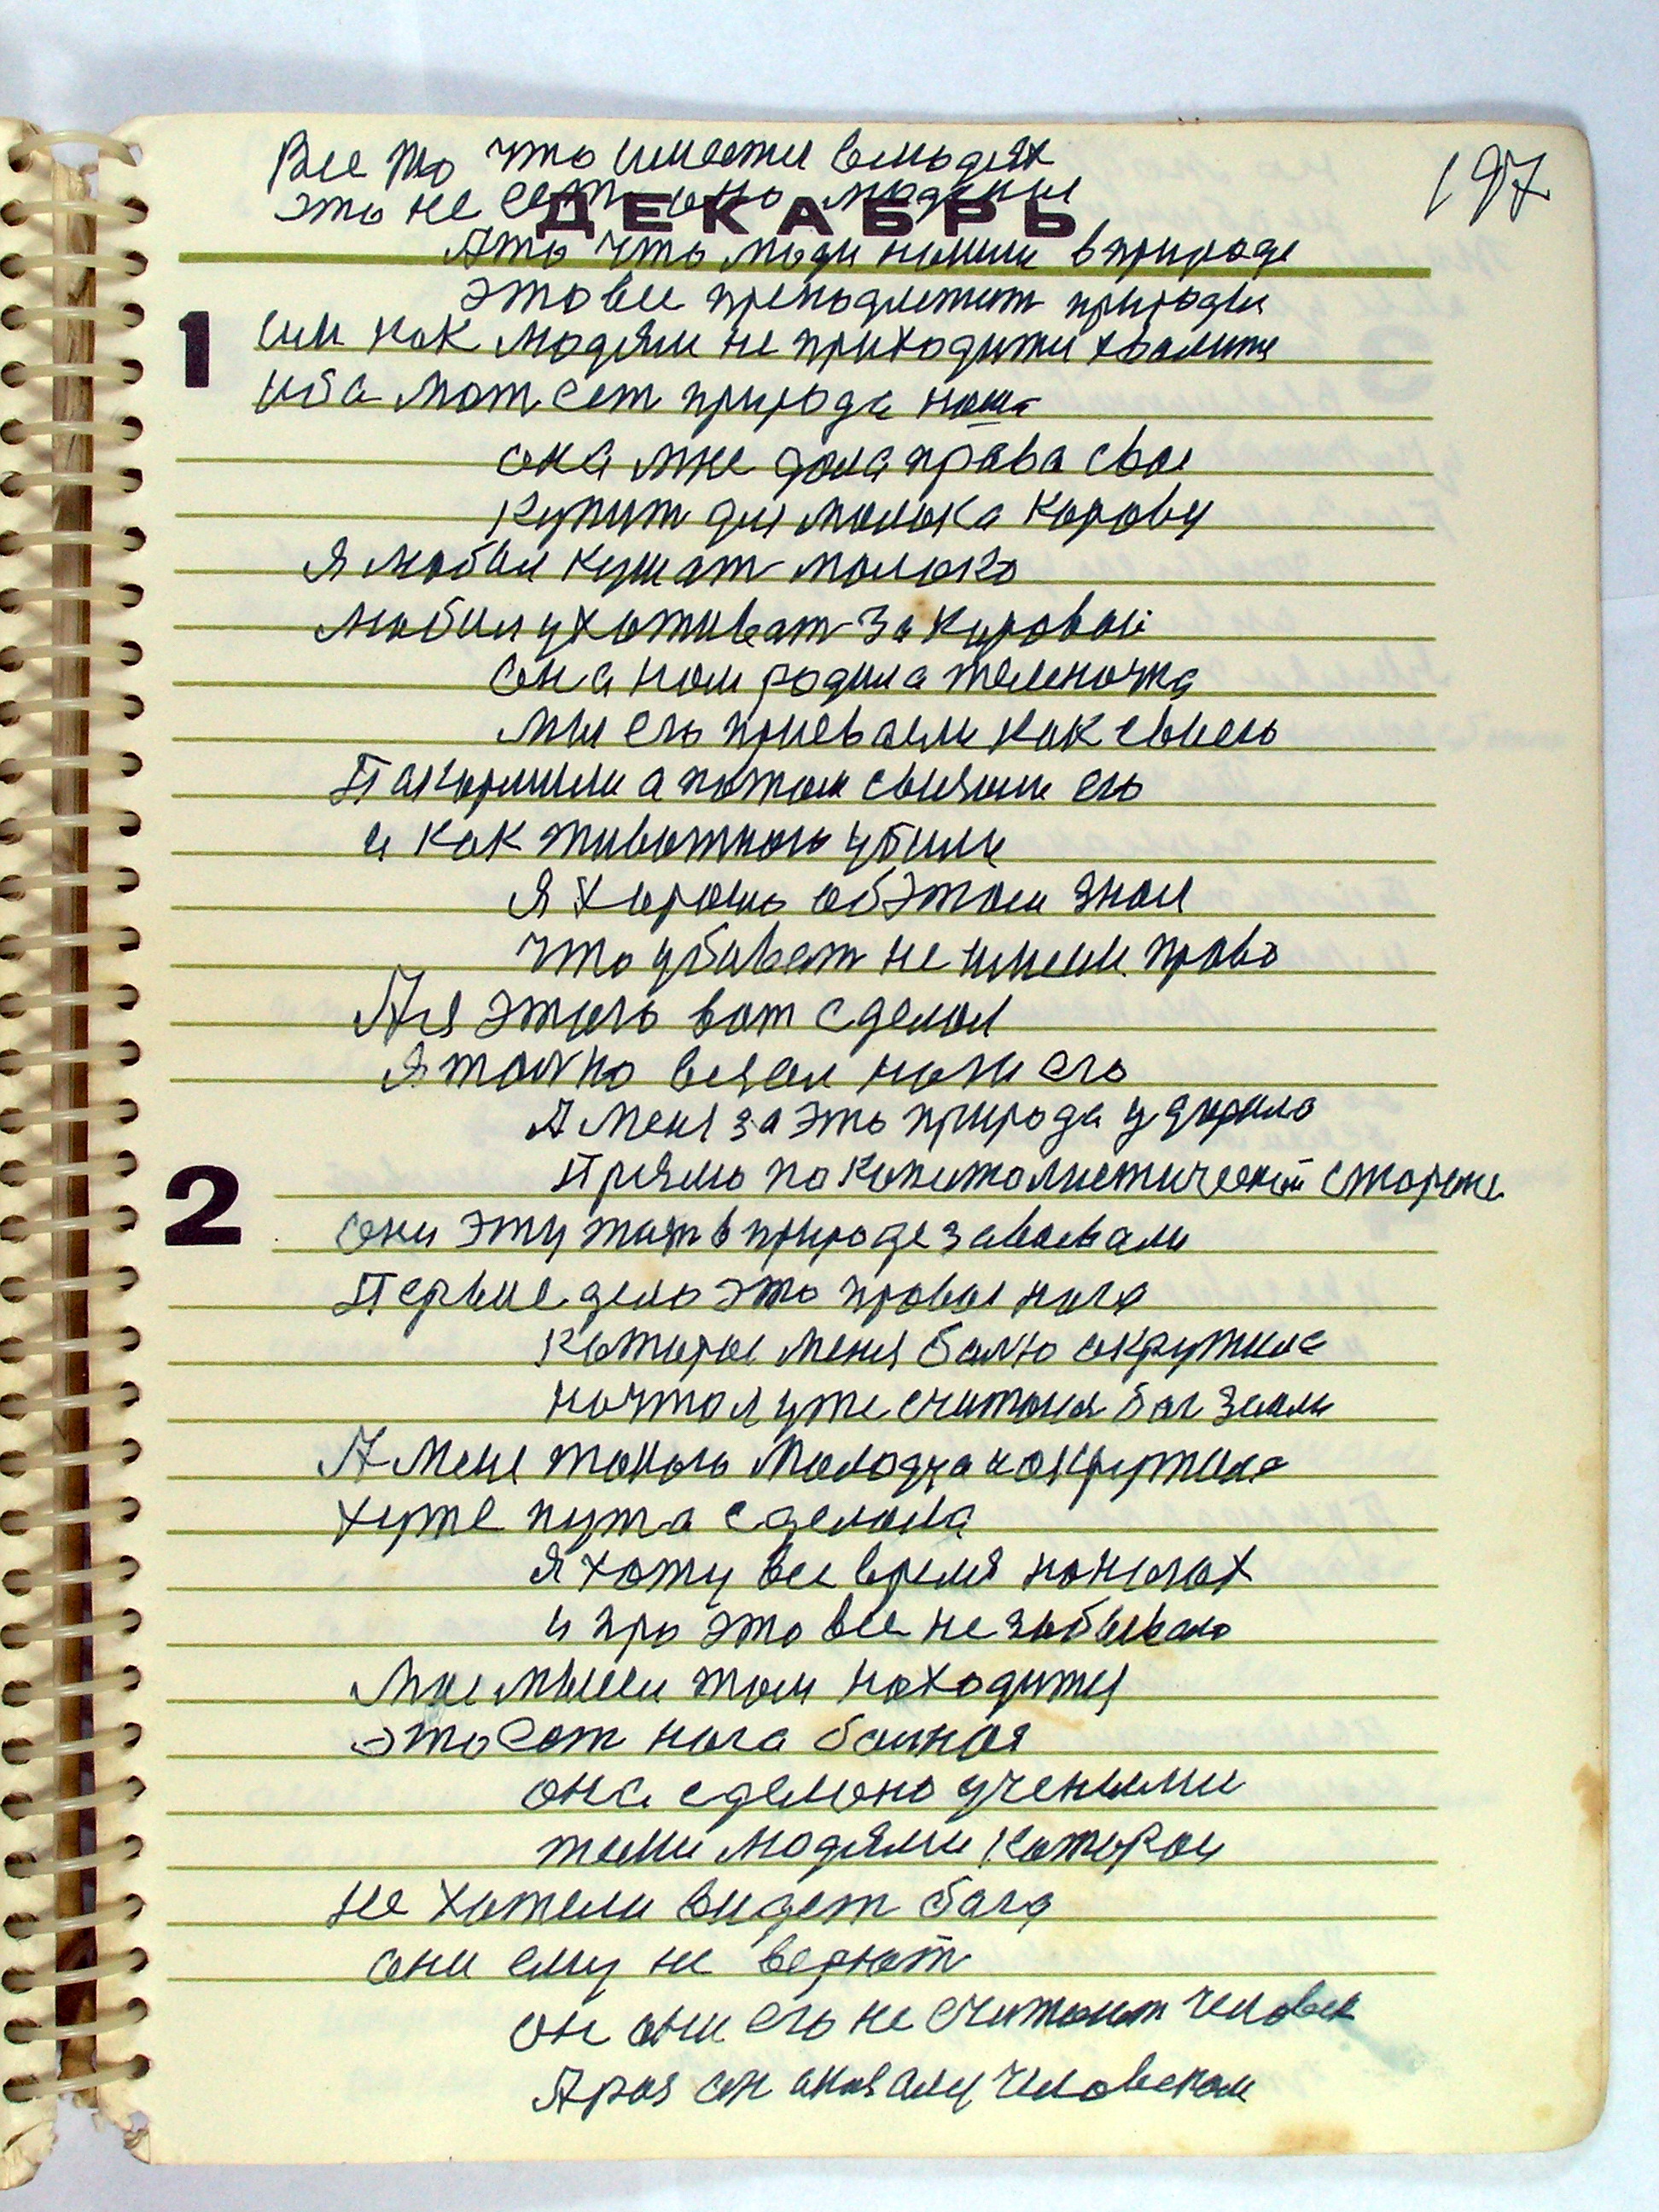 197
Все то что имеется в людях
это не есть оно людские
ДЕКАБРЬ
А то что люди нашли в природе
это все преподлежит природи
1
им как людям не приходится хвалится
иба мат ест природа наша
она мне дала права свои
купит для молока корову
Я любил кушат молоко
любил ухаживат за коровой
она нам родила теленочка
мы его приевали как своего
Пакормили а потом свизали его
и как животного убили
Я хорошо об этом знал
что убиват не имеем право
А я этого вот сделал
Я только везал ноги его
А меня за это природа ударила
Прямо по капиталистической стороне
они эту жизн в природе завоевали
Первые дело это правая нога
которая меня болю окружила
на что я уже считался бог земли
А меня такого молодца накружила
хуже пута сделала
Я хожу все время на ногах
и про это все не забываю
Мое мысли там находится
это ест нога балная
она сделано учеными
теми людями которои
не хотели видет бога
они ему не верют
он они его не считают человек
А раз он
человеком